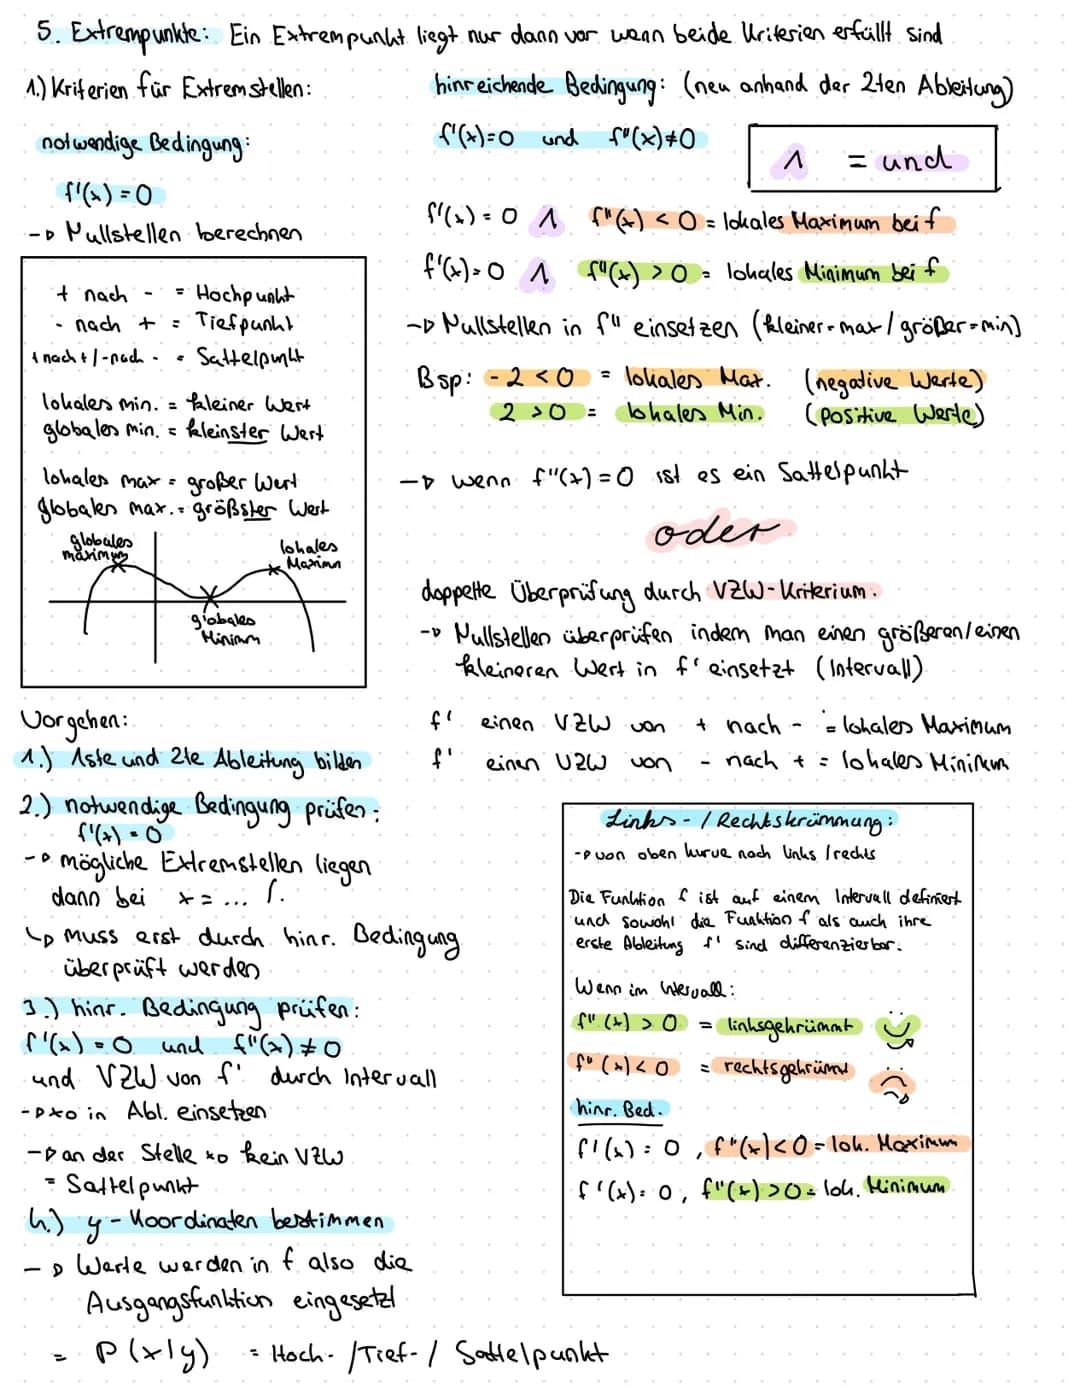 5. Extrempunkte: Ein Extrempunkt liegt nur dann vor wenn beide Kriterien erfüllt sind
1.) Kriterien für Extremstellen:
notwendige Bedingung:
f'(x) = 0
-> Nullstellen berechnen
+ nach - = Hochpunkt
- nach + = Tiefpunkt
+ nach + / - nach - = Sattelpunkt
lokales min. = kleiner Wert
globales min. = kleinster Wert
lokales max = großer Wert
globales max. = größster Wert
globales
maximum
lokales
Maximum
globales
Minimum
hinreichende Bedingung: (neu anhand der 2ten Ableitung)
f'(x)=0 und f''(x)≠0
∧ = und
f'(x) = 0 ∧ f''(x) < 0 = lokales Maximum bei f
f'(x) = 0 ∧ f''(x) > 0 = lokales Minimum bei f
-> Nullstellen in f'' einsetzen (kleiner = max / größer = min)
Bsp: -2 < 0 = lokales Max. (negative Werte)
2 > 0 = lokales Min. (positive Werte)
-> wenn f''(x) = 0 ist es ein Sattelpunkt
oder
doppelte Überprüfung durch VZW-Kriterium.
-> Nullstellen überprüfen indem man einen größeren/einen
kleineren Wert in f' einsetzt (Intervall)
f' einen VZW von + nach - = lokales Maximum
f' einen VZW von - nach + = lokales Minimum
Vorgehen:
1.) 1ste und 2te Ableitung bilden
2.) notwendige Bedingung prüfen:
f'(x) = 0
-> mögliche Extremstellen liegen
dann bei x = ... /.
↳ muss erst durch hinr. Bedingung
überprüft werden
3.) hinr. Bedingung prüfen:
f'(x) = 0 und f''(x) ≠ 0
und VZW von f' durch Intervall
-> x0 in Abl. einsetzen
-> an der Stelle x0 kein VZW
= Sattelpunkt
4.) y-Koordinaten bestimmen
-> Werte werden in f also die
Ausgangsfunktion eingesetzt
= P(x|y) = Hoch- /Tief- / Sattelpunkt
Links- / Rechtskrümmung:
-> von oben kurve nach links / rechts
Die Funktion f ist auf einem Intervall definiert
und sowohl die Funktion f als auch ihre
erste Ableitung f' sind differenzierbar.
Wenn im Intervall:
f''(x) > 0 = linksgekrümmt
f''(x) < 0 = rechtsgekrümmt
hinr. Bed.
f'(x) = 0, f''(x) < 0 = lok. Maximum
f'(x) = 0, f''(x) > 0 = lok. Minimum